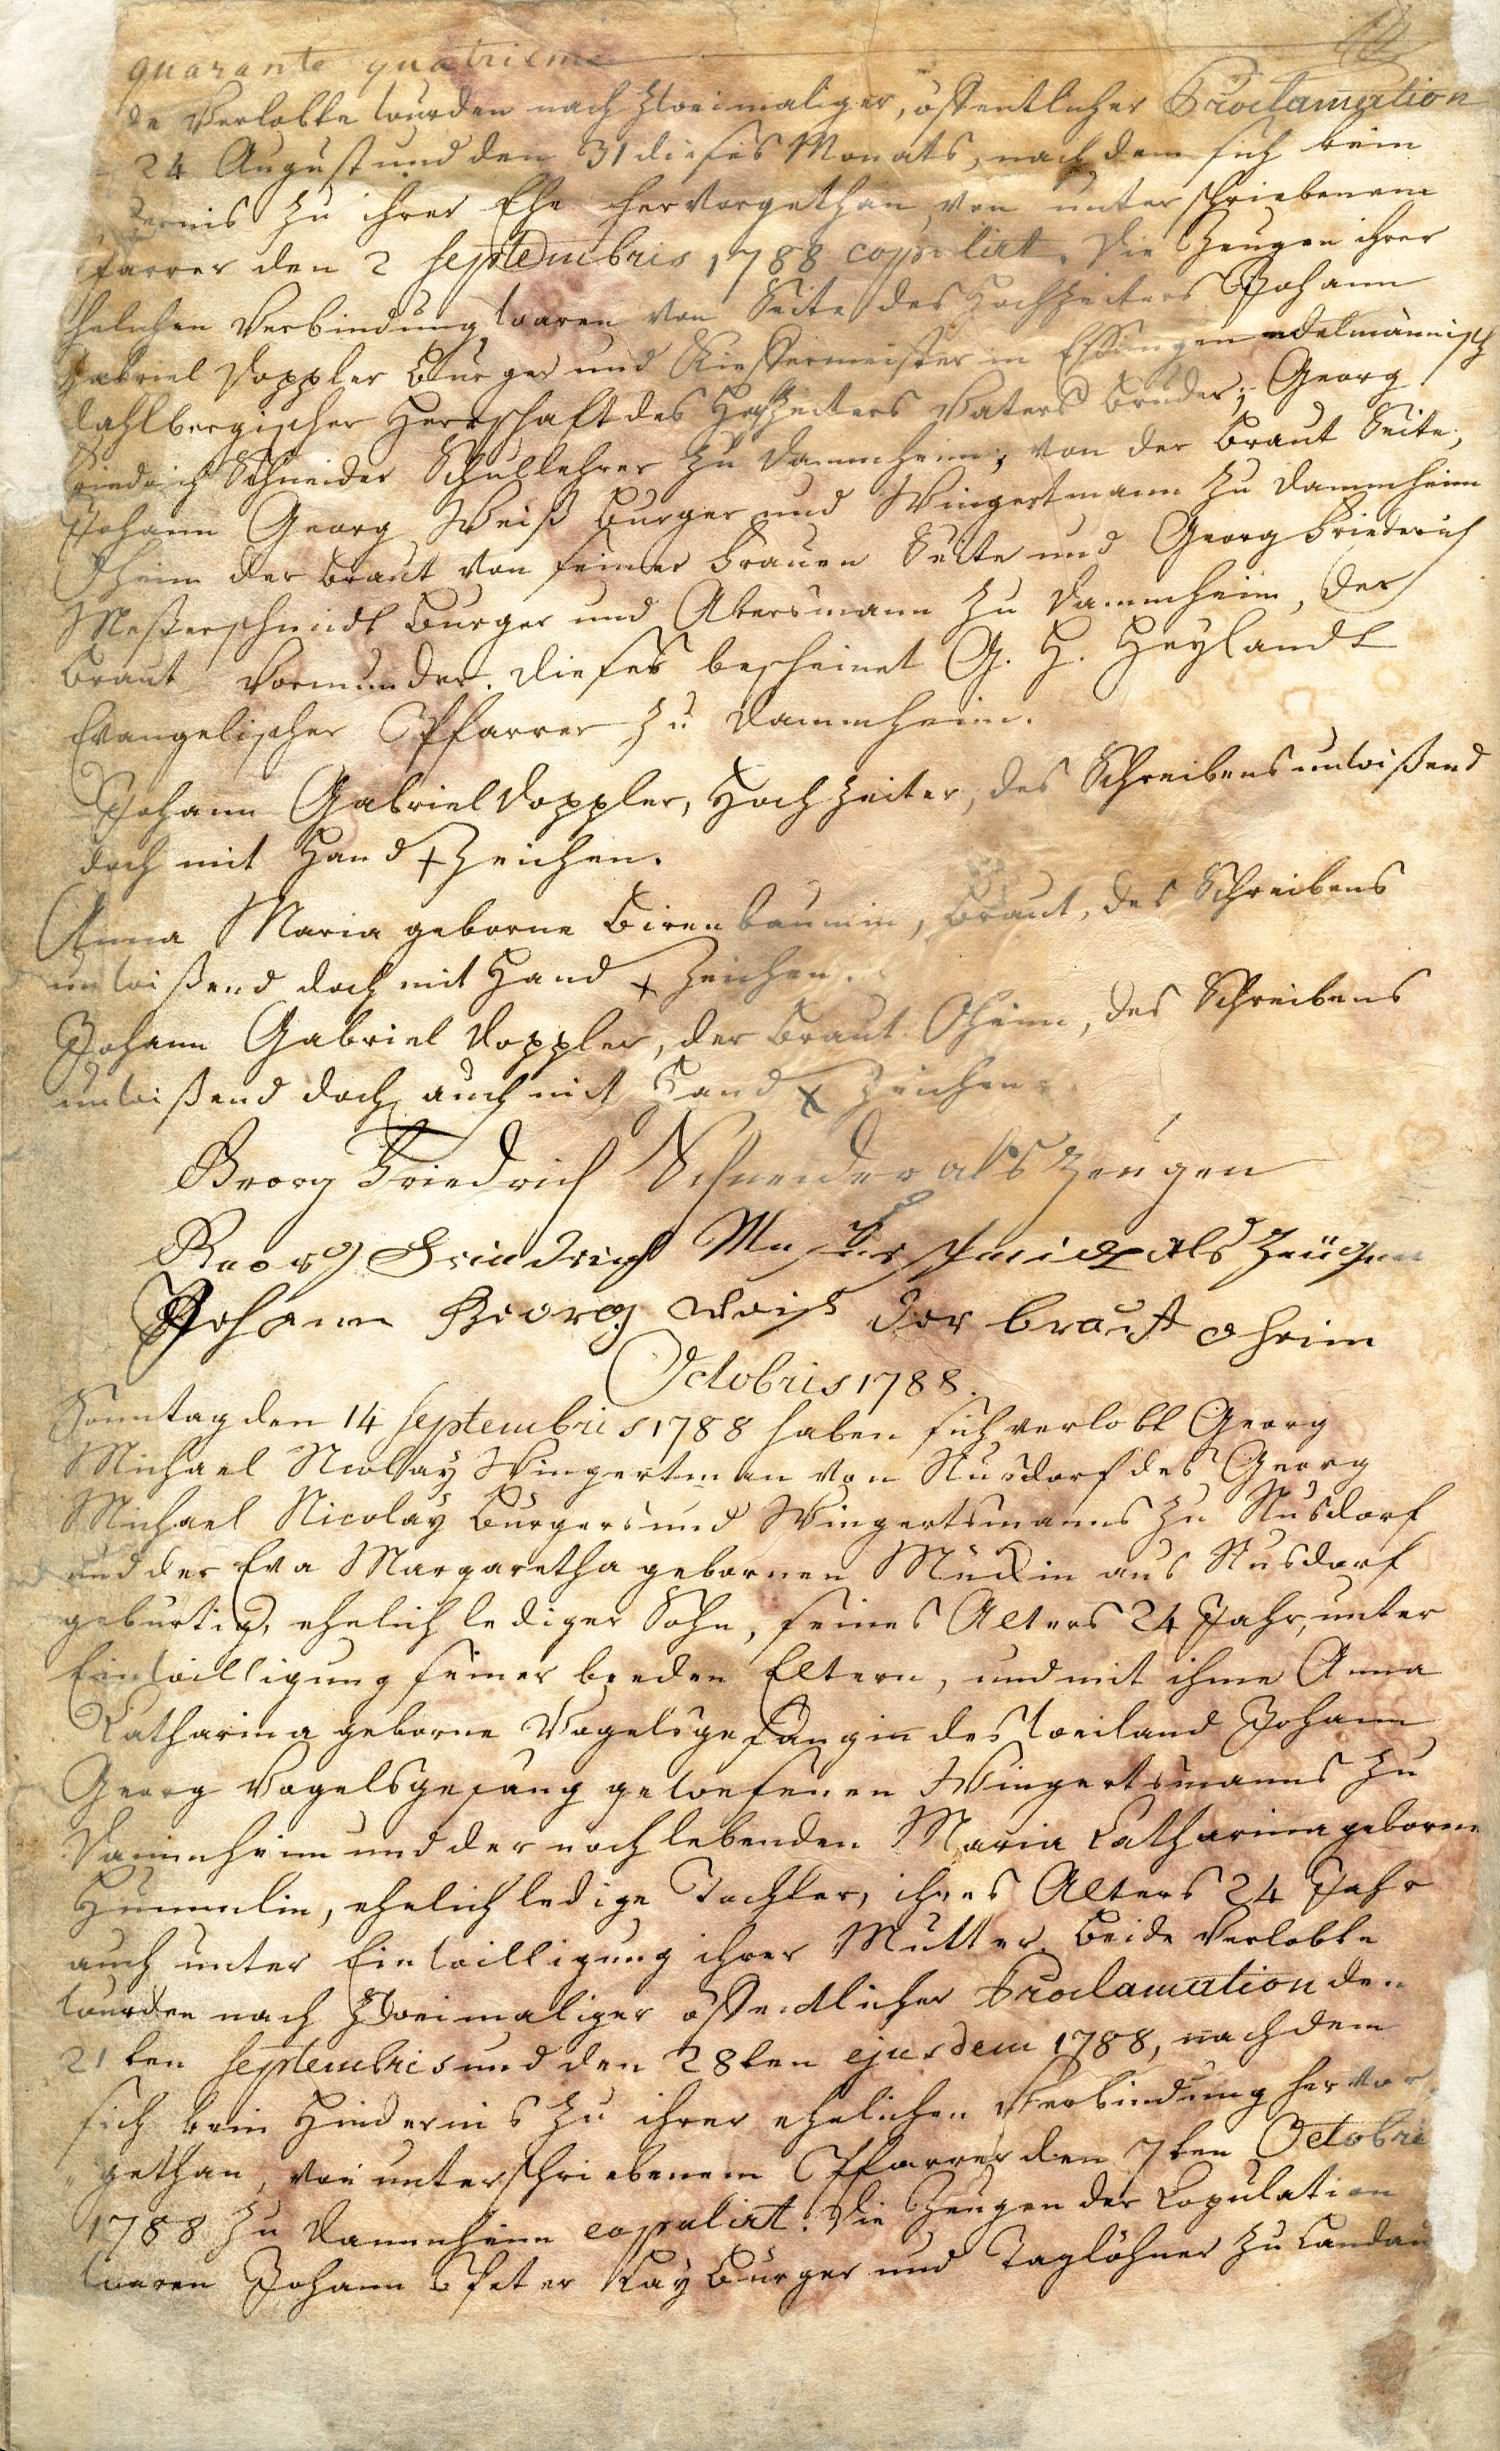 quarante quatrieme
de Verlobte wurden nach zweimaliger, öffentlicher Proclamation
24 August und den 31 dieses Monats, nach dem sich kein
dernis zu ihrer Ehe hervorgethan, von unterschriebenem
farrer den 2 Septembris 1788 copulirt. Die Zeugen ihrer
helichen Verbindung waren von Seite des Hochzeiters Johann
Gabriel Doppler Burger und Kieffermeister in Essingen edelmännisch
dahlbergischer Herrschaft des Hochzeiters Vaters Bruder; Georg
Friedrich Schneider Schullehrer zu Dammheim; von der Braut Seite,
Johann Georg Weiß Burger und Wingertmann zu Dammheim
Oheim der Braut von seiner Frauen Seite und Georg Friederich
Meßerschmidt Burger und Akersmann zu Dammheim, der
Braut Vormunder. Dieses bescheinet G. H. Heylandt
Evangelischer Pfarrer zu Dammheim.
Johann Gabriel Doppler, Hochzeiter, des Schreibens unwißend
doch mit Hand + Zeichen.
Anna Maria geborne Birenbaumin, Braut, des Schreibens
unwißend doch mit Hand + Zeichen.
Johann Gabriel Doppler, der Braut Oheim, des Schreibens
unwißend doch auch mit Hand x Zeichen.
Georg Friedrich Schneider als Zeugen
Georg Friedrich Messerschmidt als Zeugen
Johann Georg Weiß der braut oheim
Octobris 1788.
Sonntag den 14 Septembris 1788 haben sich verlobt Georg
Michael Nicolay Wingertman von Nusdorf des Georg
Michael Nicolay Burgers und Wingertsmanns zu Nusdorf
und der Eva Margaretha gebornen Mückin aus Nusdorf
geburtig, ehelich lediger Sohn, seines Alters 24 Jahr, unter
Einwilligung seiner beeden Eltern, und mit ihme Anna
Catharina geborne Vogelsgesangin des weiland Johann
Georg Vogelsgesang gewesenen Wingertsmanns zu
Dammheim und der noch lebenden Maria Catharina geborne
Hummelin, ehelich ledige Tochter, ihres Alters 24 Jahr
auch unter Einwilligung ihrer Mutter. Beide Verlobte
wurden nach zweimaliger öffentlicher Proclamation den
21ten Septembris und den 28ten ejusdem 1788, nachdem
sich kein Hindernis zu ihrer ehelichen Verbindung hervor
gethan, von unterschriebenem Pfarrer den 7ten Octobri
1788 zu Dammheim copulirt. Die Zeugen der Copulation
waren Johann Peter Kay Burger und Taglöhner zu Landau